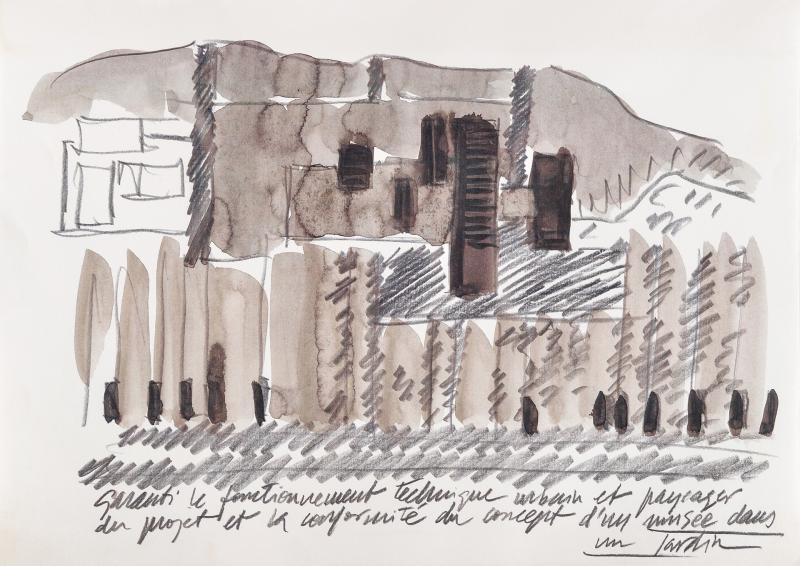 Garanti le fonctionnement technique urbain et paysager
du projet et la conformité du concept d'un musée dans
un jardin